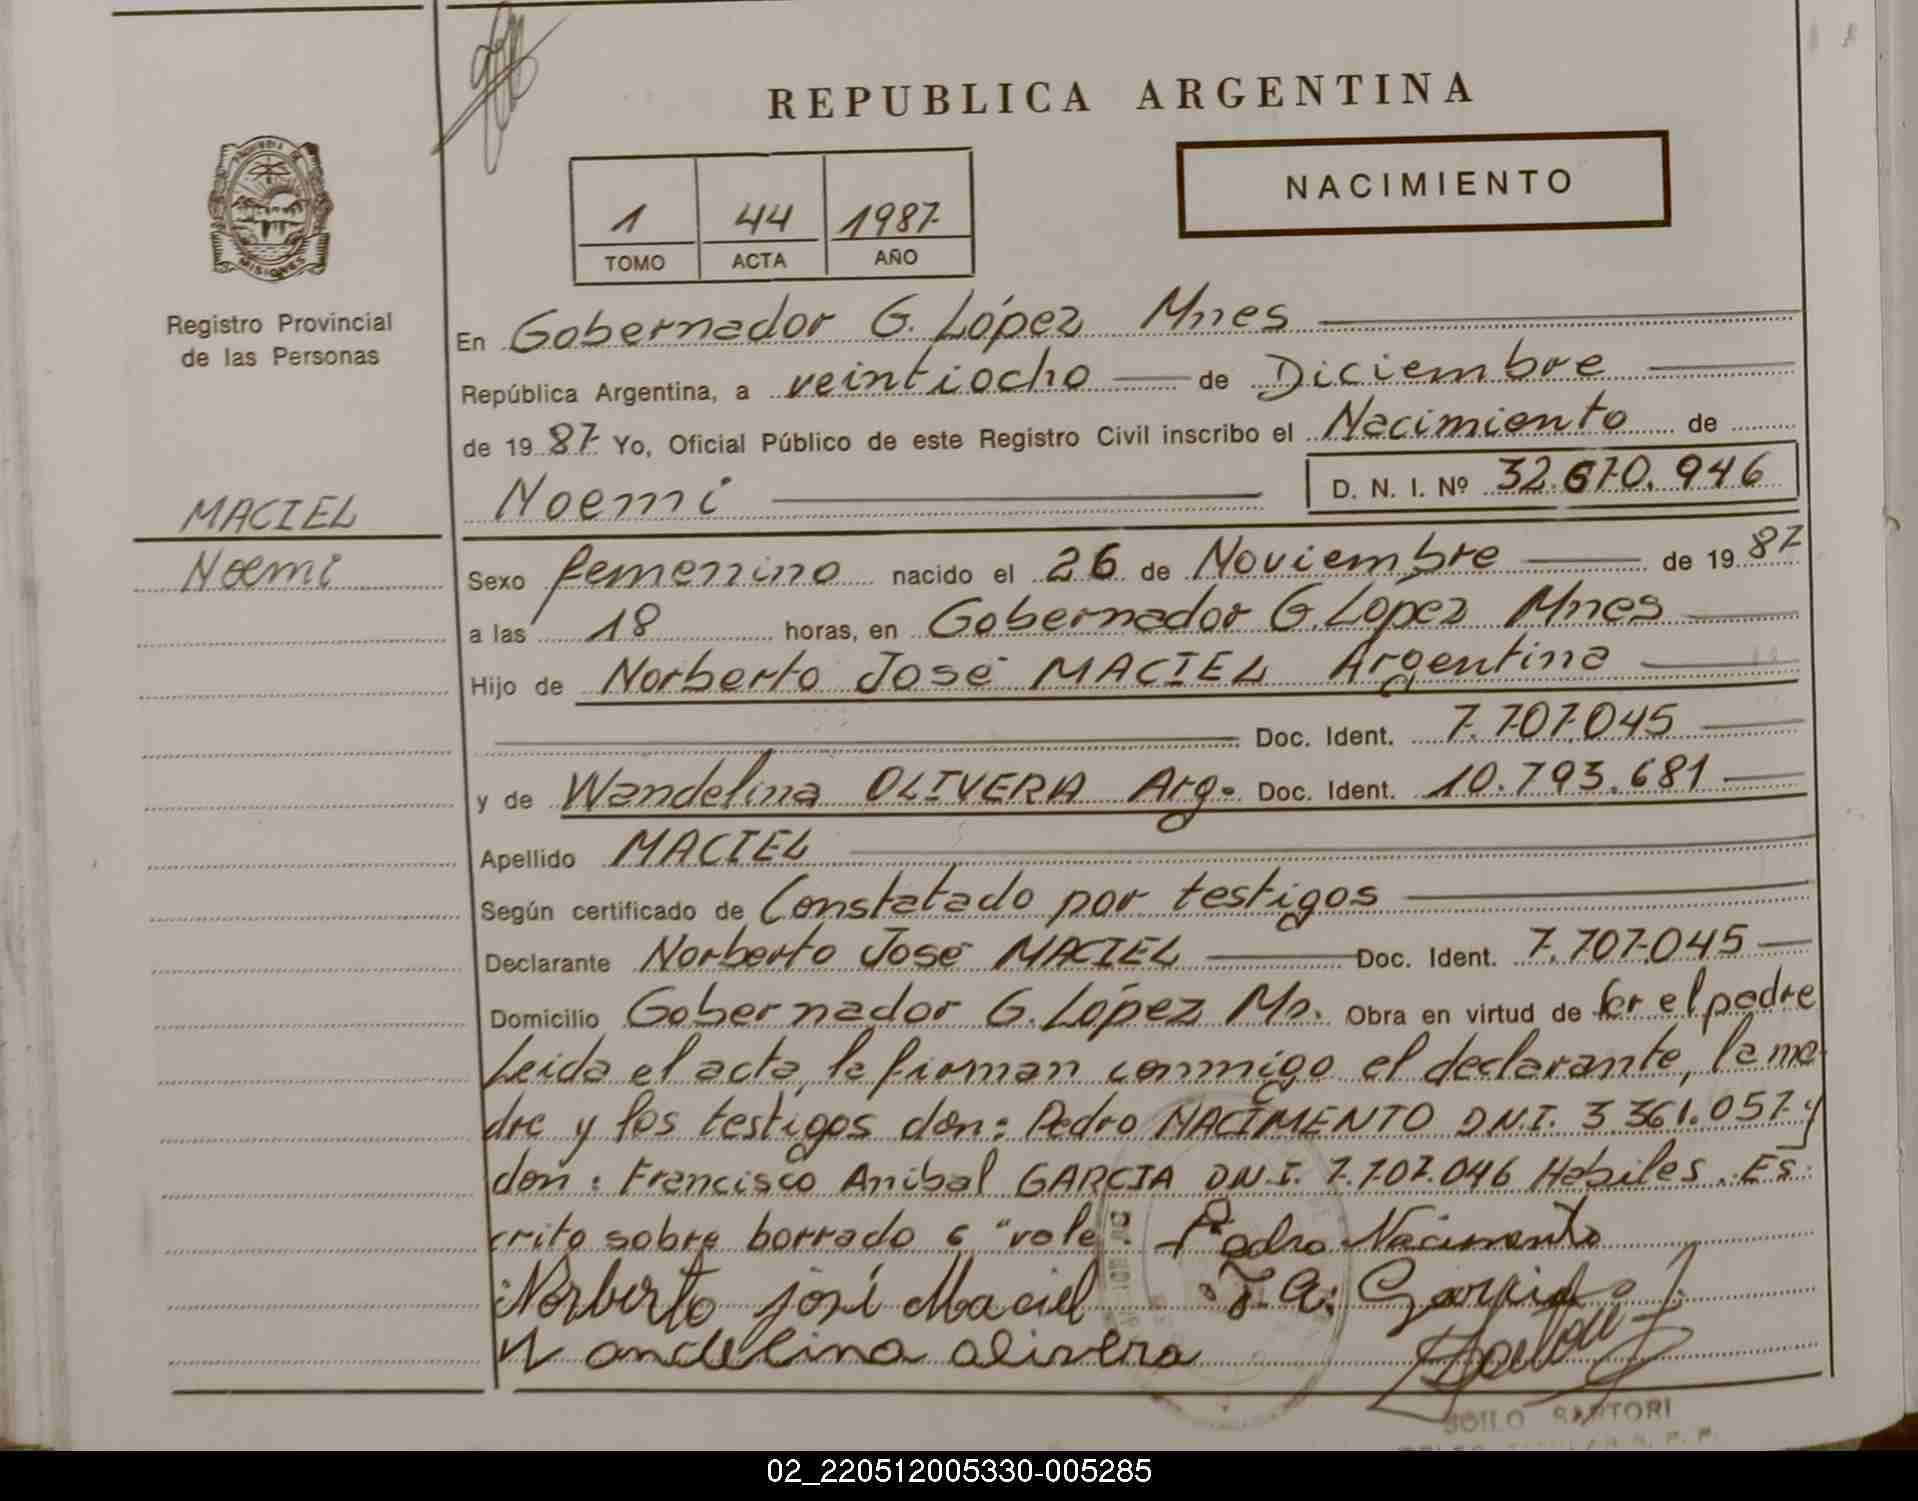 REPUBLICA ARGENTINA
NACIMIENTO
1 44 1987
TOMO ACTA AÑO
PROVINCIA DE
MISIONES
Registro Provincial
de las Personas
En Gobernador G. López Mnes
República Argentina, a veintiocho de Diciembre
de 1987 Yo, Oficial Público de este Registro Civil inscribo el Nacimiento de
MACIEL
Noemi
Noemi D. N. I. Nº 32.670.946
Sexo femenino nacido el 26 de Noviembre de 1987
a las 18 horas, en Gobernador G. López Mnes
Hijo de Norberto José MACIEL Argentina
Doc. Ident. 7.707.045
y de Wandelina OLIVERA Arg. Doc. Ident. 10.793.681
Apellido MACIEL
Según certificado de Constatado por testigos
Declarante Norberto José MACIEL Doc. Ident. 7.707.045
Domicilio Gobernador G. López Mn. Obra en virtud de ser el padre
Leida el acta, la firman conmigo el declarante, la ma
dre y los testigos don: Pedro NACIMENTO D.N.I. 3.361.057 y
don: Francisco Anibal GARCIA D.N.I. 7.707.046 Habiles. Es
crito sobre borrado 6 "vale. Pedro Nacimento
Norberto josé Maciel F. A. Garcia
Wandelina olivera
SOILO SARTORI
02_220512005330-005285